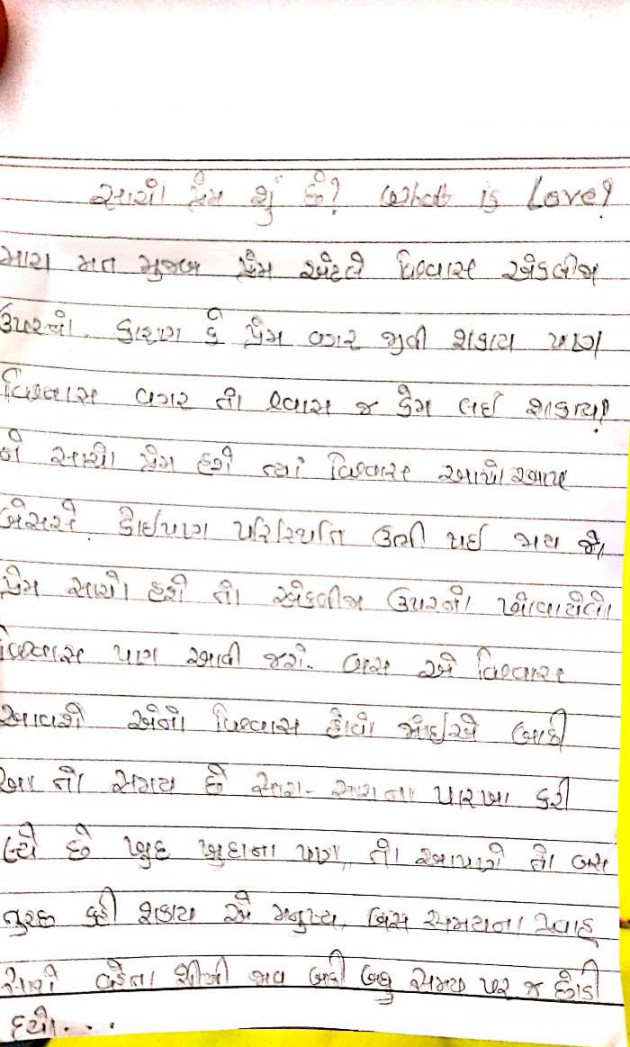 સાચો પ્રેમ શું છે? What is Love?
મારા મત મુજબ પ્રેમ એટલે વિશ્વાસ એકબીજા
ઉપરનો. કારણ કે પ્રેમ વગર જીવી શકાય પણ
વિશ્વાસ વગર તો શ્વાસ જ કેમ લઈ શકાય?
જો સાચો પ્રેમ હશે ત્યાં વિશ્વાસ આપોઆપ
બેસશે. કોઈપણ પરિસ્થિતિ ઉભી થઈ જાય જો
પ્રેમ સાચો હશે તો એકબીજા ઉપરનો ખોવાયેલો
વિશ્વાસ પણ આવી જશે. બસ એ વિશ્વાસ
આવશે એનો વિશ્વાસ હોવો જોઈએ બાકી
આ તો સમય છે સારા-સારાના પારખા કરી
લ્યે છે ખુદ ખુદાના પણ, તો આપણે તો બસ
તુચ્છ કહી શકાય એ મનુષ્ય, બસ સમયના પ્રવાહ
સાથે વહેતા શીખી જાવ બાકી બધુ સમય પર જ છોડી
દ્યો...